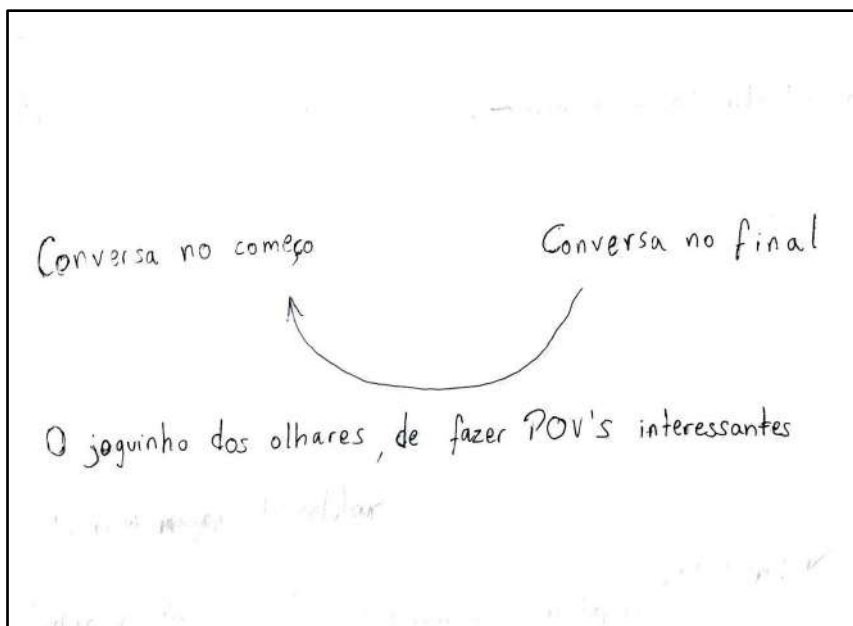 Conversa no começo
Conversa no final
O joguinho dos olhares, de fazer POV's interessantes